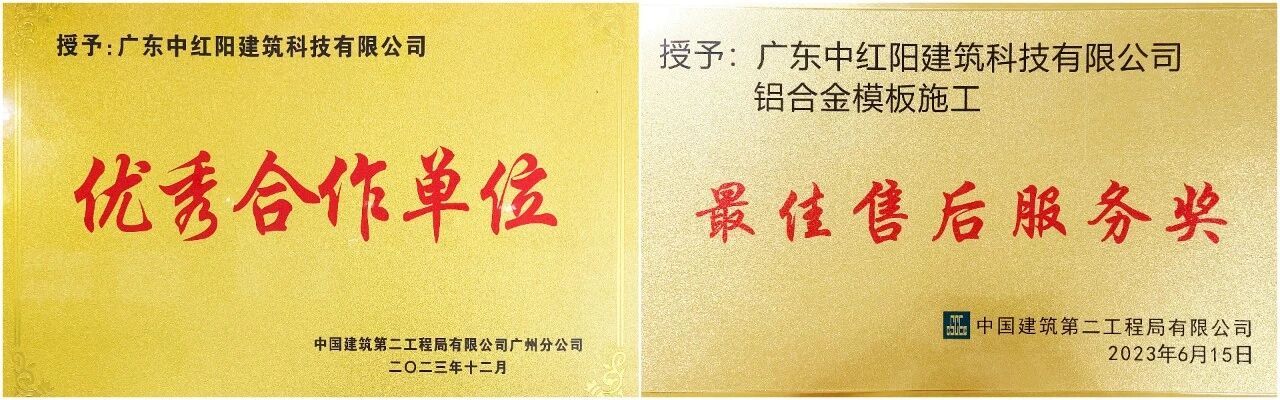 授予:广东中红阳建筑科技有限公司
优秀合作单位
中国建筑第二工程局有限公司广州分公司
二〇二三年十二月
授予：广东中红阳建筑科技有限公司
铝合金模板施工
最佳售后服务奖
中国建筑第二工程局有限公司
2023年6月15日